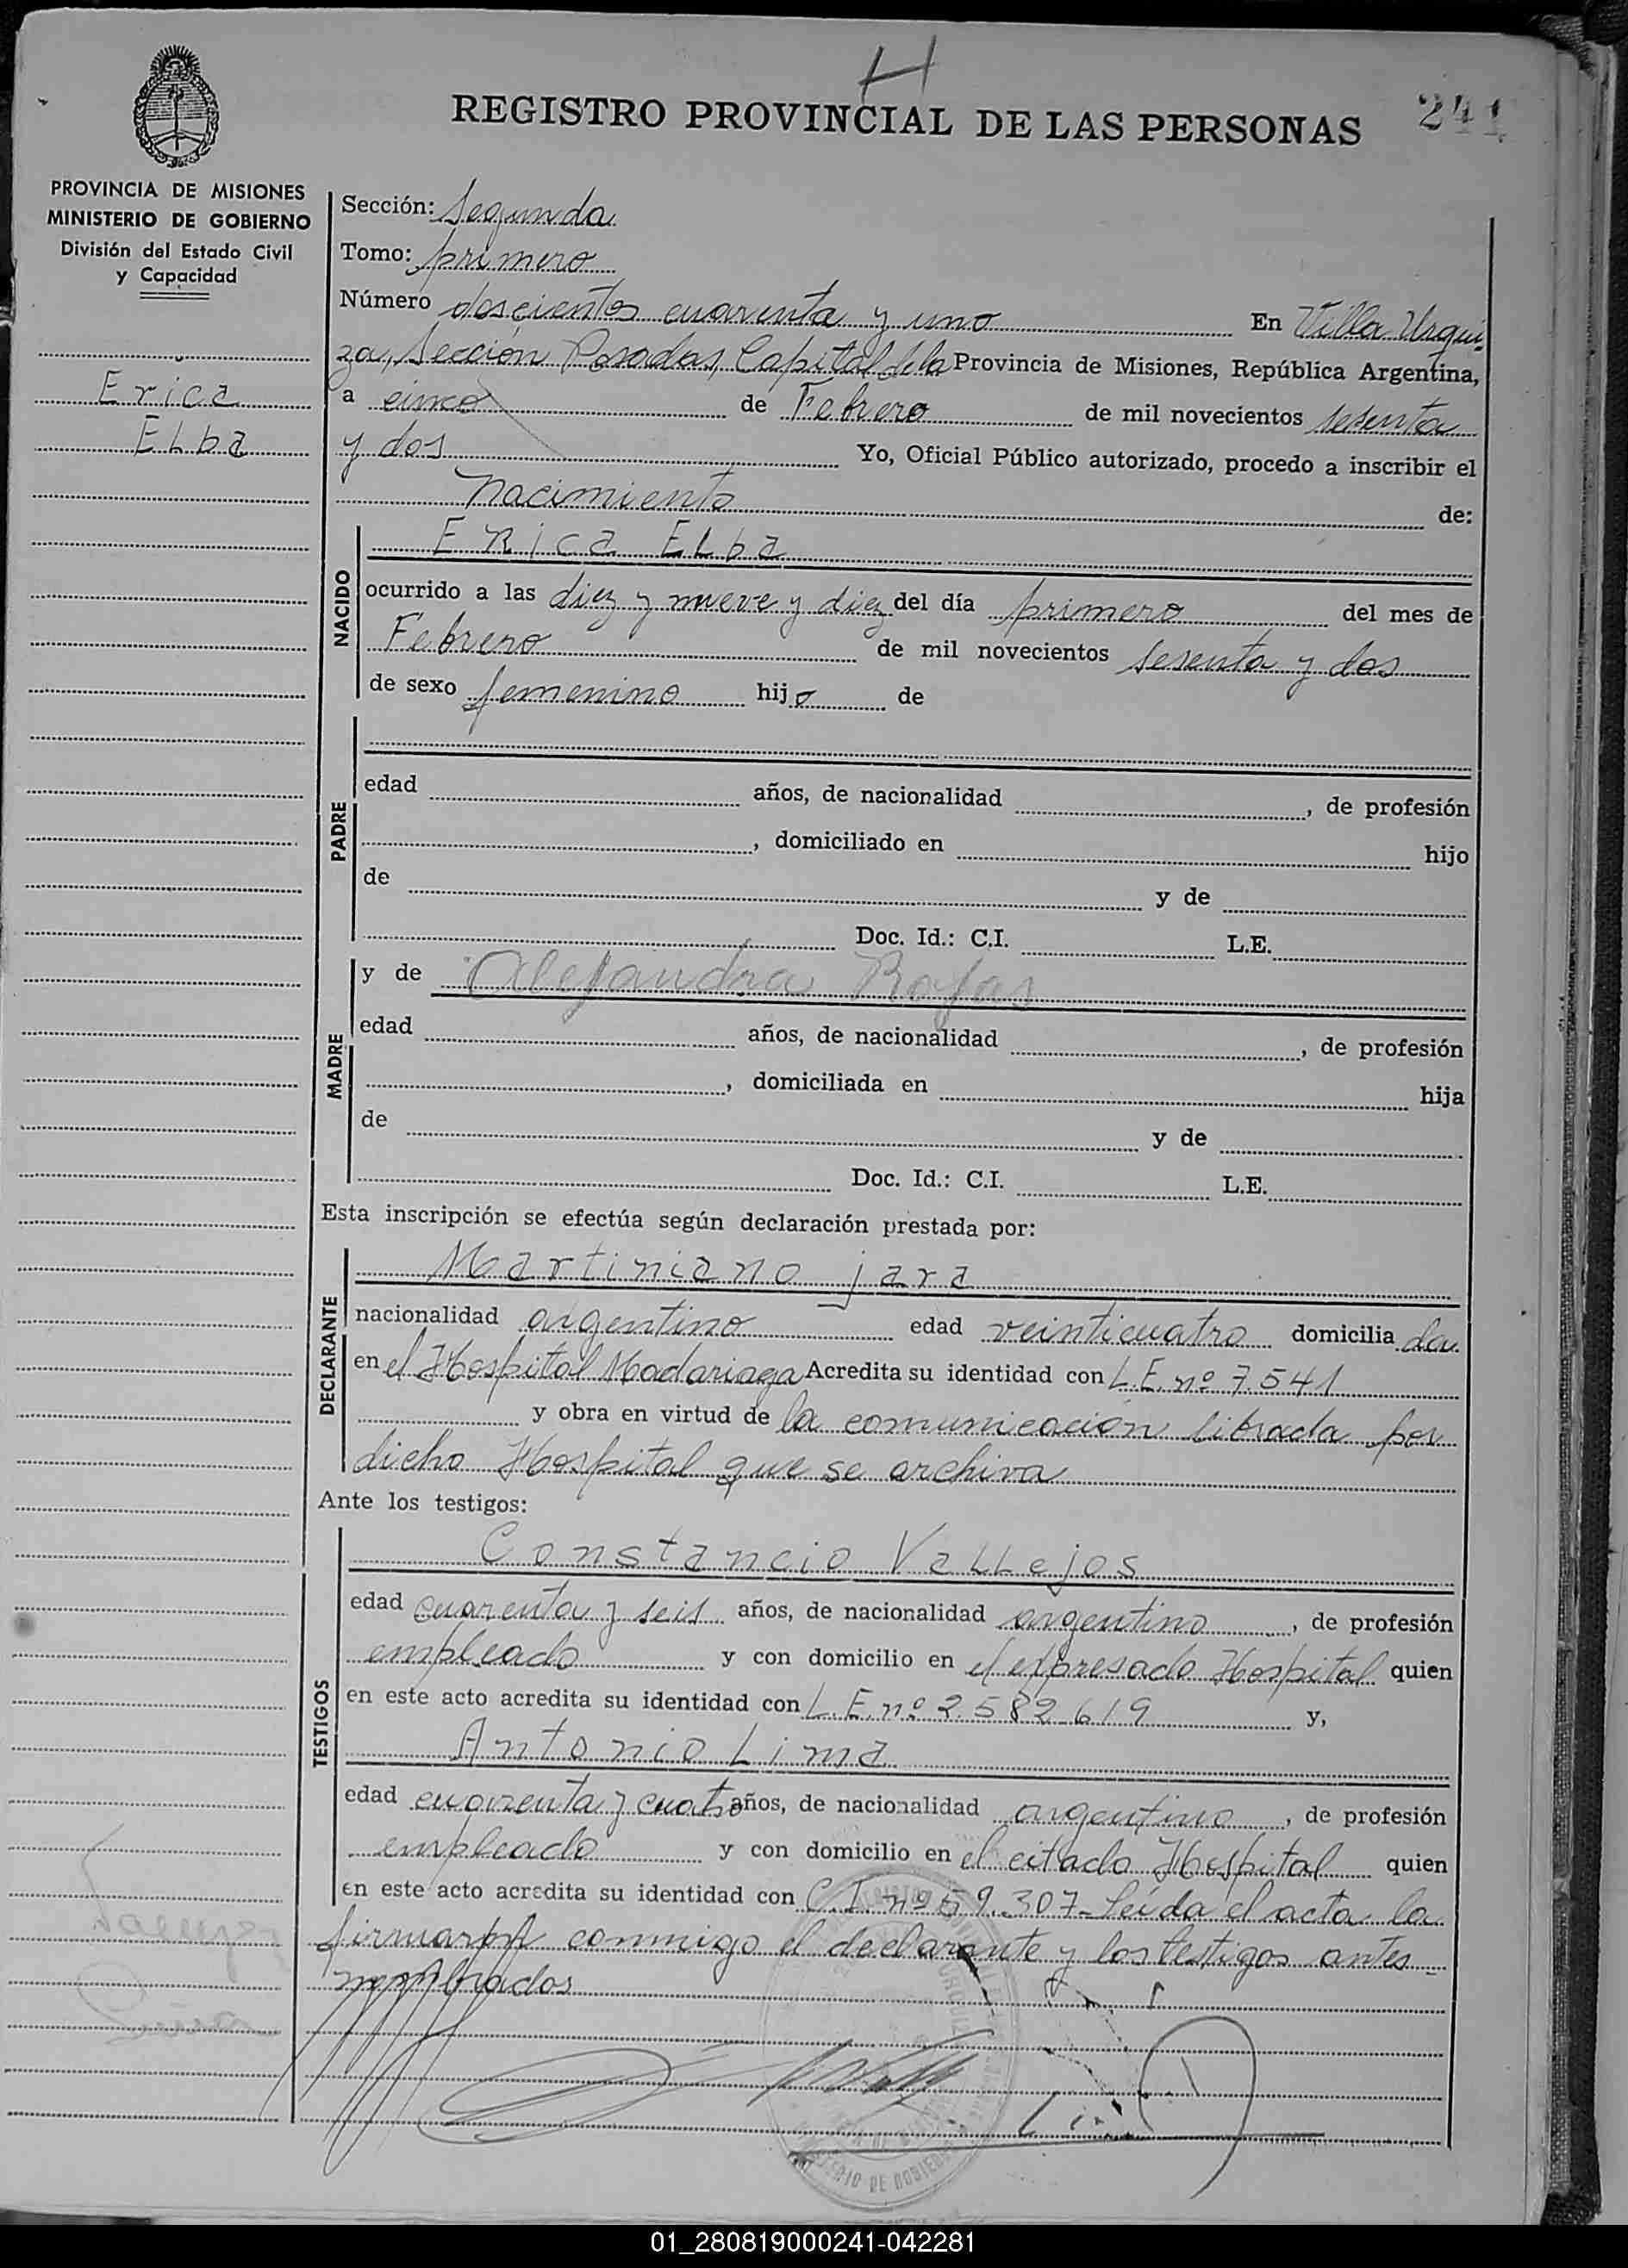 H
REGISTRO PROVINCIAL DE LAS PERSONAS
241
PROVINCIA DE MISIONES
MINISTERIO DE GOBIERNO
División del Estado Civil
y Capacidad
Erica
Elba
Sección: Segunda
Tomo: primero
Número doscientos cuarenta y uno En Villa Urqui-
za, Sección Posadas, Capital de la Provincia de Misiones, República Argentina,
a cinco de Febrero de mil novecientos sesenta
y dos Yo, Oficial Público autorizado, procedo a inscribir el
nacimiento de:
NACIDO
Erica Elba
ocurrido a las diez y nueve y diez del día primero del mes de
Febrero de mil novecientos sesenta y dos
de sexo femenino hijo de
PADRE
edad años, de nacionalidad , de profesión
, domiciliado en hijo
de y de
Doc. Id.: C.I. L.E.
MADRE
y de Alejandra Rojas
edad años, de nacionalidad , de profesión
, domiciliada en hija
de y de
Doc. Id.: C.I. L.E.
Esta inscripción se efectúa según declaración prestada por:
DECLARANTE
Martiniano jara
nacionalidad argentino edad veinticuatro domicilia do
en el Hospital Madariaga Acredita su identidad con L.E. nº 7.541
y obra en virtud de la comunicación librada por
dicho Hospital que se archiva
Ante los testigos:
TESTIGOS
Constancio Vallejos
edad cuarenta y seis años, de nacionalidad argentino, de profesión
empleado y con domicilio en el expresado Hospital quien
en este acto acredita su identidad con L.E. nº 2.582.619 y,
Antonio Lima
edad cuarenta y cuatro años, de nacionalidad argentino, de profesión
empleado y con domicilio en el citado Hospital quien
en este acto acredita su identidad con C.I. nº 59.307- Leída el acta la
firmaron conmigo el declarante y los testigos antes
nombrados
01_280819000241-042281